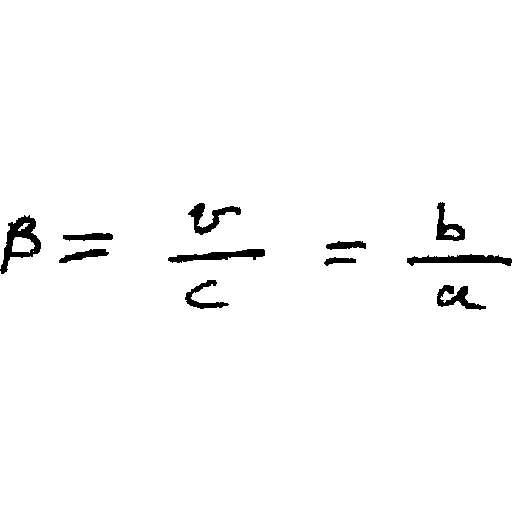 β = v/c = b/a